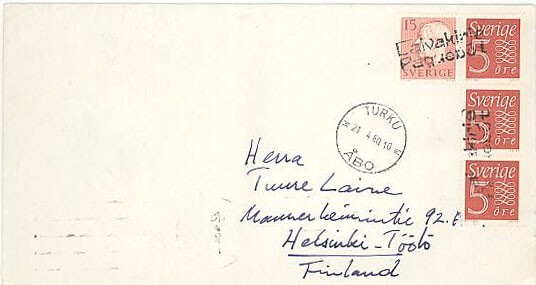 15
SVERIGE
Laivakirje
Paquebot
Sverige
5 öre
Sverige
5 öre
Sverige
5 öre
TURKU
21 4.60.10
ÅBO
Herra
Tuure Laine
Mannerheimintie 92.
Helsinki-Töölö
Finland